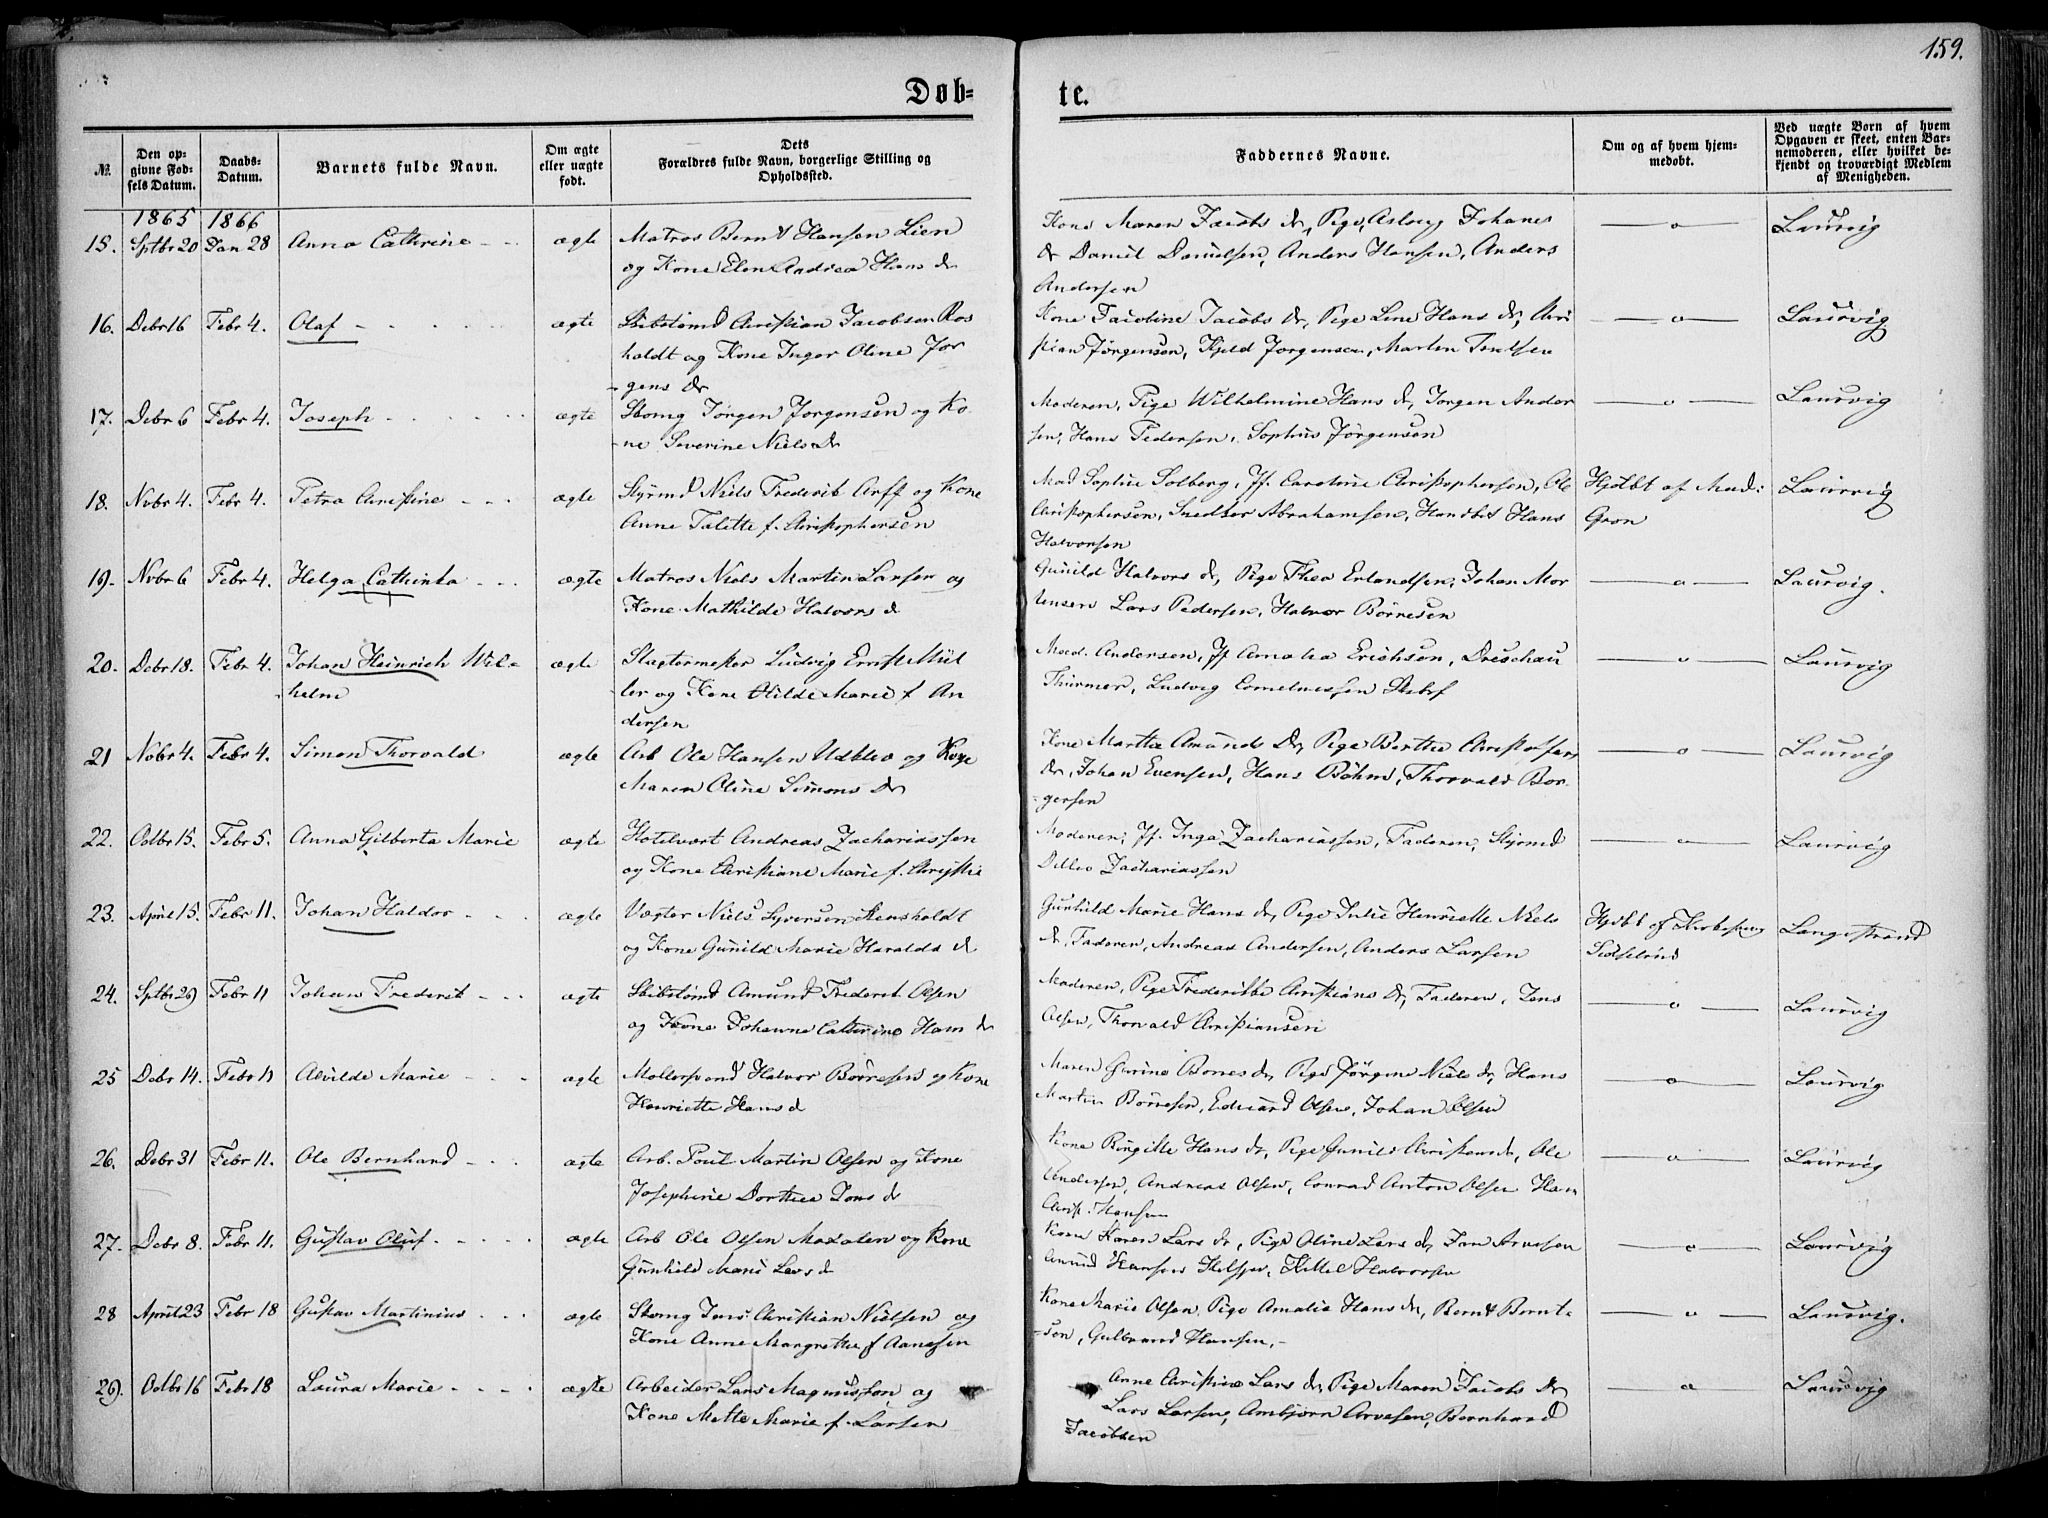 159.
Døb-
te.
№.
Den op-
givne Fød-
sels Datum.
Daabs-
Datum.
Barnets fulde Navn.
Om ægte
eller uægte
født.
Dets
Forældres fulde Navn, borgerlige Stilling og
Opholdssted.
Faddernes Navne.
Om og af hvem hjem-
medøbt.
Ved uægte Børn af hvem
Opgaven er skeet, enten Bar-
nemoderen, eller hvilket be-
kjendt og troværdigt Medlem
af Menigheden.
1865 1866
15. Sptbr 20 Jan 28 Anna Cathrine - - ægte Matros Bernt Hansen Lien
og Kone Elen Andrea Hans dr
Kone Maren Jacobs dr, Pige Asborg Johanes
dr Daniel Danielsen, Anders Hansen, Anders
Andersen
—o— Laurvig
16. Debr 16 Febr 4. Olaf - - - - ægte Skibstømd Christian Jacobsen Ros
holdt og Kone Inger Oline Jør
gens dr
Kone Jacobine Jacobs dr, Pige Line Hans dr, Chri
stian Jørgensen, Kjeld Jørgensen, Martin
—o— Laurvig
17. Debr 6 Febr 4. Joseph - - - - ægte Skomg Jørgen Jørgensen og Ko-
-ne Severine Niels dr
Moderen, Pige Wilhelmine Hans dr, Jørgen Ander
sen, Hans Pedersen, Sophus Jørgensen
—o— Laurvig
18. Nvbr 4. Febr 4. Petra Christine - - - ægte Styrmd Niels Frederik Arff og Kone
Anne Talette f. Christophersen
Mad Sophie Solberg, Jf. Caroline Christophersen, Ole
Christophersen, Snedker Abrahamsen, Handbet Hans
Halvorsen
Hjdbt af Mad:
Grøn
Laurvig
19. Nvbr 6 Febr 4. Helga Cathinka - - - ægte Matros Niels Martin Larsen og
Kone Mathilde Halvors d
Gunild Halvors dr, Pige Thea Erlandsen, Johan Mor
tensen Lars Pedersen, Halvor Børresen
—o— Laurvig.
20. Debr 18. Febr 4. Johan Heinrich Wil-
-helm
ægte Slagtermester Ludvig Ernst Mül
ler og Kone Hilde Marie f An
dersen
Mad. Andersen, Jf Amalia Erichsen, Dreschau
Thürmer, Ludvig Corneliussen Skibsf
—o— Laurvig
21 Nobr 4. Febr 4. Simon Thorvald ægte Arb Ole Hansen Udklev og Kone
Maren Oline Simons dr
Kone Marthe Amunds dr, Pige Berthe Christoffers
dr, Johan Evensen, Hans Bøhm, Thorvald Bor-
-gersen
—o— Laurvig
22. Octbr 15. Febr 5. Anna Gilberta Marie ægte Hotelvært Andreas Zachariassen
og Kone Christiane Marie f. Chrystie
Moderen, Jf. Inga Zachariassen, Faderen, Styrmd
Ditlev Zachariassen
—o— Laurvig
23. April 15. Febr 11. Johan Haldor - - ægte Vægter Niels Syversen Stensholdt
og Kone Gunild Marie Haralds d
Gunhild Marie Hans dr, Pige Julie Henriette Niels
dr, Faderen, Andreas Andersen, Anders Larsen
Hjdbt af Kirkesang
Langestrand
24. Sptbr 29 Febr 11 Johan Frederik - - - ægte Skibstømd Amund Frederik Olsen
og Kone Johanne Cathrine Hans dr
Moderen, Pige Frederikke Christians dr, Faderen, Jens
Olsen, Thorvald Christiansen
—o— Laurvig
25 Debr 14. Febr 11 Alvilde Marie - - - ægte Møllersvend Halvor Børresen og Kone
Henriette Hans d
Maren Gurine Børres dr, Pige Jørgine Niels dr, Hans
Martin Børresen, Edvard Olsen, Johan Olsen
—o— Laurvig
26. Debr 31 Febr 11. Ole Bernhard - - - ægte Arb. Poul Martin Olsen og Kone
Josephine Dorthea Jens d
Kone Birgitte Hans dr, Pige Gunild Christens dr, Ole
Andersen, Andreas Olsen, Conrad Anton Olsen Hans
Christ. Hansen
—o— Laurvig
27. Debr 8. Febr 11. Gustav Oluf - - - - ægte Arb Ole Olsen og Kone
Gunhild Marie Lars d
Kone Karen Lars dr, Pige Oline Lars dr, Jan Arvesen
Amund Hansen Kittel Halvorsen
—o— Laurvig
28 April 23 Febr 18 Gustav Martinius - - - ægte Skomg Jens Christian Nielsen og
Kone Anne Margrethe f Aanesen
Kone Marie Olsen, Pige Amalia Hans dr, Bernt Bernt-
-sen, Gulbrand Hansen,-
—o— Laurvig.
29. Octbr 16 Febr 18 Laura Marie - - - - ægte Arbeider Lars Magnussøn og
Kone Mette Marie f. Larsen
Anne Christine Lars dr, Pige Maren Jacobs dr
Lars Larsen, Ambjørn Arvesen, Bernhard
Jacobsen
—o— Laurvig